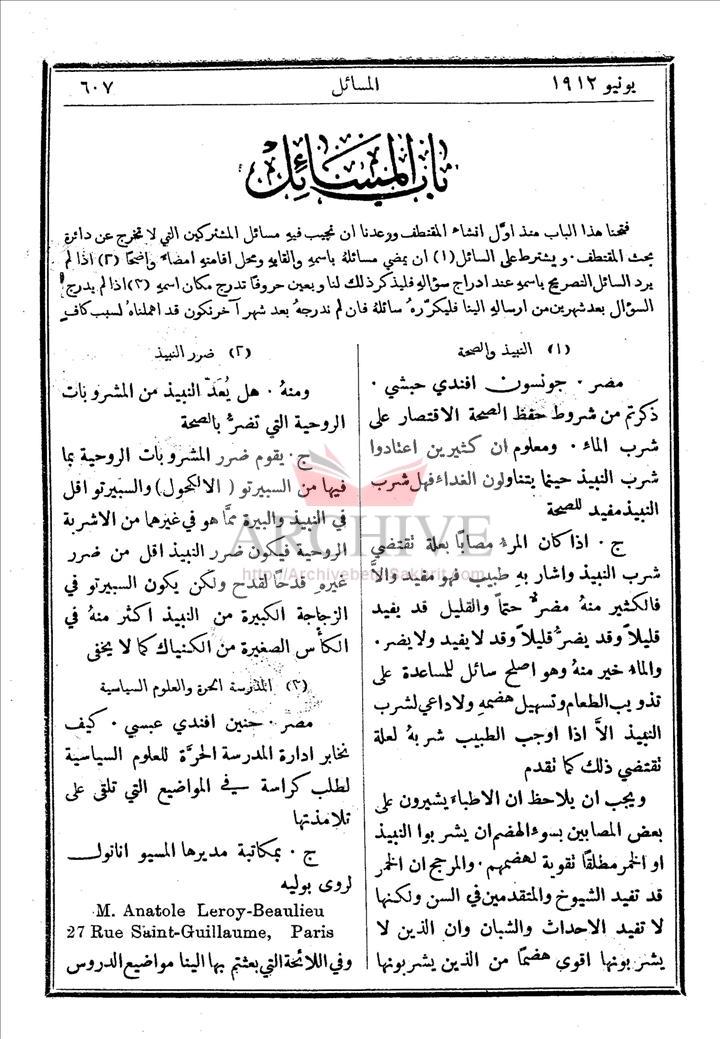 يونيو ١٩١٢
المسائل
٦٠٧
باب المسائل
فتحنا هذا الباب منذ اوّل انشاء المقتطف ووعدنا ان نجيب فيهِ مسائل المشتركين التي لا تخرج عن دائرة
بحث المقتطف . ويشترط على السائل (١) ان يمضي مسائلهُ باسمهِ والقابهِ ومحل اقامتهِ امضاءً واضحًا (٢) اذا لم
يرد السائل التصريح باسمهِ عند ادراج سؤالهِ فليذكر ذلك لنا ويعين حروفًا تدرج مكان اسمهِ (٣) اذا لم يدرج
السؤال بعد شهرين من ارسالهِ الينا فليكرّرهُ سائلهُ فان لم ندرجهُ بعد شهر آخر نكون قد اهملناهُ لسبب كافٍ
(١) النبيذ والصحة
مصر . جونسون افندي حبشي .
ذكرتم من شروط حفظ الصحة الاقتصار على
شرب الماء . ومعلوم ان كثيرين اعتادوا
شرب النبيذ حينما يتناولون الغداء فهل شرب
النبيذ مفيد للصحة
ج . اذا كان المرء مصابًا بعلة تقتضي
شرب النبيذ واشار بهِ طبيب فهو مفيد والاَّ
فالكثير منهُ مضرٌّ حتمًا والقليل قد يفيد
قليلاً وقد يضرُّ قليلاً وقد لا يفيد ولا يضر .
والماء خير منهُ وهو اصلح سائل للمساعدة على
تذويب الطعام وتسهيل هضمهِ ولا داعي لشرب
النبيذ الاَّ اذا اوجب الطبيب شربهُ لعلة
تقتضي ذلك كما تقدم
ويجب ان يلاحظ ان الاطباء يشيرون على
بعض المصابين بسوء الهضم ان يشربوا النبيذ
او الخمر مطلقًا تقوية لهضمهم . والمرجح ان الخمر
قد تفيد الشيوخ والمتقدمين في السن ولكنها
لا تفيد الاحداث والشبان وان الذين لا
يشربونها اقوى هضمًا من الذين يشربونها
(٢) ضرر النبيذ
ومنهُ . هل يُعَدّ النبيذ من المشروبات
الروحية التي تضرُّ بالصحة
ج . يقوم ضرر المشروبات الروحية بما
فيها من السبيرتو ( الالكحول ) والسبيرتو اقل
في النبيذ والبيرة ممَّا هو في غيرهما من الاشربة
الروحية فيكون ضرر النبيذ اقل من ضرر
غيرهِ قدحًا لقدح ولكن يكون السبيرتو في
الزجاجة الكبيرة من النبيذ اكثر منهُ في
الكأس الصغيرة من الكنياك كما لا يخفى
(٣) المدرسة الحرة والعلوم السياسية
مصر . حنين افندي عبسي . كيف
نخابر ادارة المدرسة الحرَّة للعلوم السياسية
لطلب كراسة في المواضيع التي تلقى على
تلامذتها
ج . بمكاتبة مديرها المسيو اناتول
لروى بوليه
M. Anatole Leroy-Beaulieu
27 Rue Saint-Guillaume, Paris
وفي اللائحة التي بعثتم بها الينا مواضيع الدروس
ARCHIVE
http://Archivebeta.Sakhrit.com